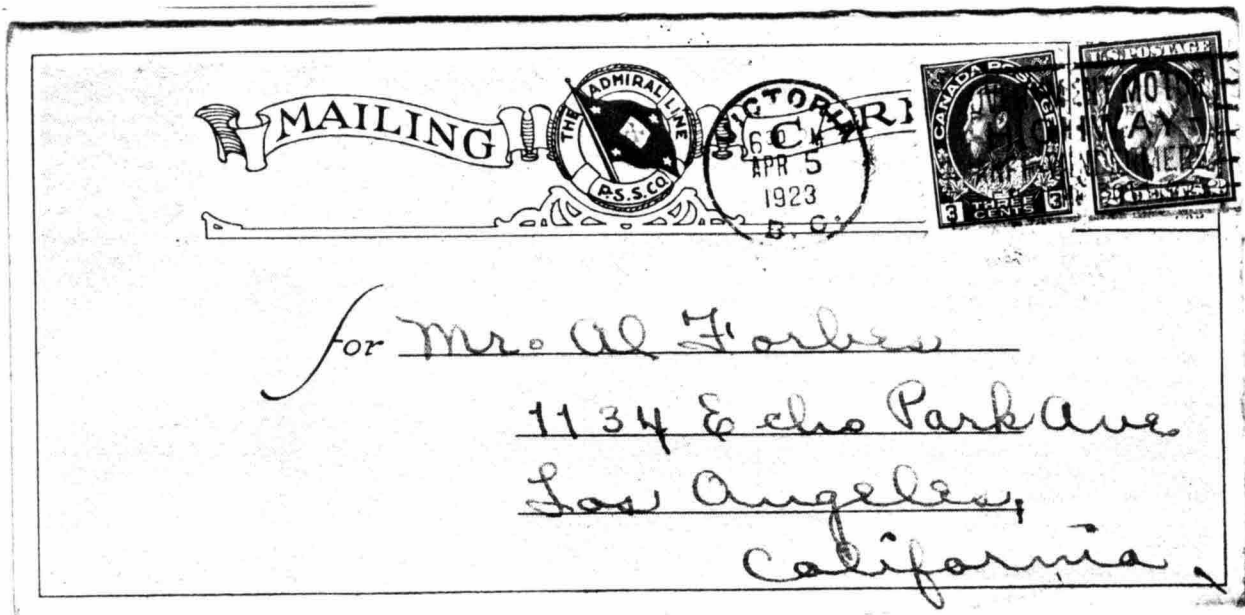 MAILING
THE ADMIRAL LINE
P.S.S.CO.
VICTORIA
APR 5
1923
B. C.
CANADA
3 THREE CENTS 3
U.S. POSTAGE
2 CENTS 2
MOTOR
for Mr. Al Forbes
1134 Echo Park Ave.
Los Angeles,
California